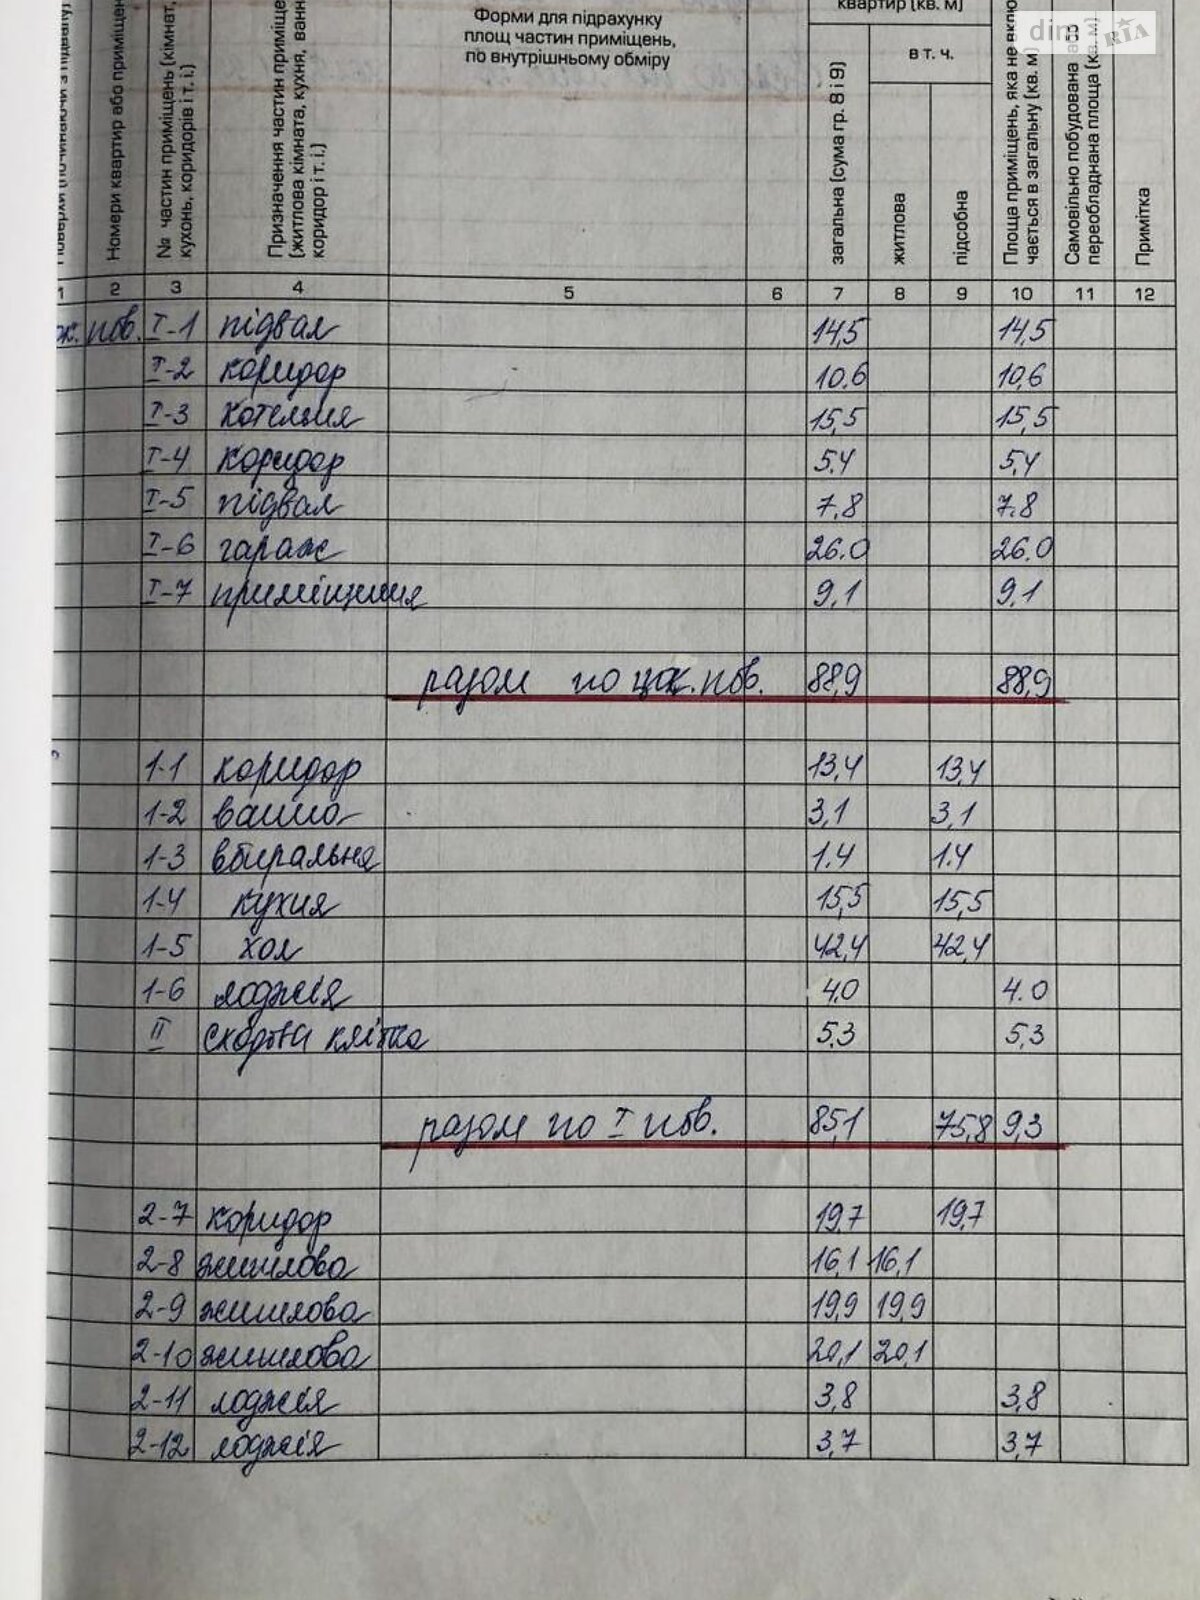 dim RIA
Номери квартир або приміщен
№ частин приміщень (кімнат,
кухонь, коридорів і т. і.)
Призначення частин приміще
(житлова кімната, кухня, ванн
коридор і т. і.)
Форми для підрахунку
площ частин приміщень,
по внутрішньому обміру
квартир (кв. м)
загальна (сума гр. 8 і 9)
в т. ч.
житлова
підсобна
Площа приміщень, яка не вклю
чається в загальну (кв. м)
Самовільно побудована або
переобладнана площа (кв. м)
Примітка
1 2 3 4 5 6 7 8 9 10 11 12
ок. пов. I-1 підвал 14,5 14,5
I-2 коридор 10.6 10,6
I-3 котельня 15,5 15,5
I-4 коридор 5.4 5,4
I-5 підвал 7.8 7.8
I-6 гараж 26.0 26.0
I-7 приміщення 9,1 9,1
разом по цок. пов. 88,9 88,9
1-1 коридор 13,4 13,4
1-2 ванна 3,1 3,1
1-3 вбиральня 1.4 1.4
1-4 кухня 15,5 15,5
1-5 хол 42,4 42,4
1-6 лоджія 4,0 4.0
II сходова клітка 5,3 5,3
разом по I пов. 85,1 75,8 9,3
2-7 коридор 19,7 19,7
2-8 житлова 16,1 16,1
2-9 житлова 19,9 19,9
2-10 житлова 20,1 20,1
2-11 лоджія 3,8 3,8
2-12 лоджія 3,7 3,7